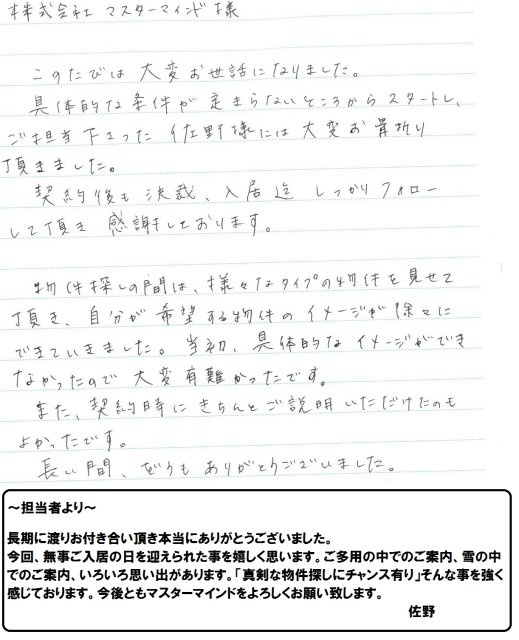 株式会社 マスターマインド様
このたびは 大変お世話になりました。
具体的な条件が定まらないところからスタートし、
ご担当下さった 佐野様には大変お骨折り
頂きました。
契約後も 決裁、入居迄 しっかりフォロー
して頂き 感謝しております。
物件探しの間は、様々なタイプの物件を見せて
頂き、自分が希望する物件のイメージが徐々に
できていきました。当初、具体的なイメージができ
なかったので 大変有難かったです。
また、契約時にきちんとご説明いただけたのも
よかったです。
長い間、どうもありがとうございました。
～担当者より～
長期に渡りお付き合い頂き本当にありがとうございました。
今回、無事ご入居の日を迎えられた事を嬉しく思います。ご多用の中でのご案内、雪の中
でのご案内、いろいろ思い出があります。「真剣な物件探しにチャンス有り」そんな事を強く
感じております。今後ともマスターマインドをよろしくお願い致します。
佐野